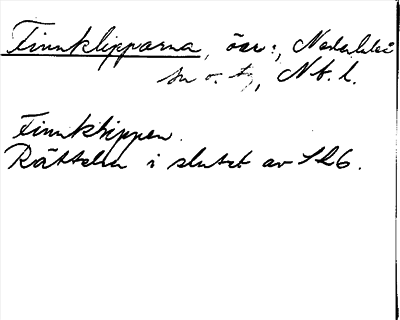 Finnklipparna, öar, Nederluleå
sn o. tg, Nb. l.
Finnklippan.
Rättelse i slutet av SL6.